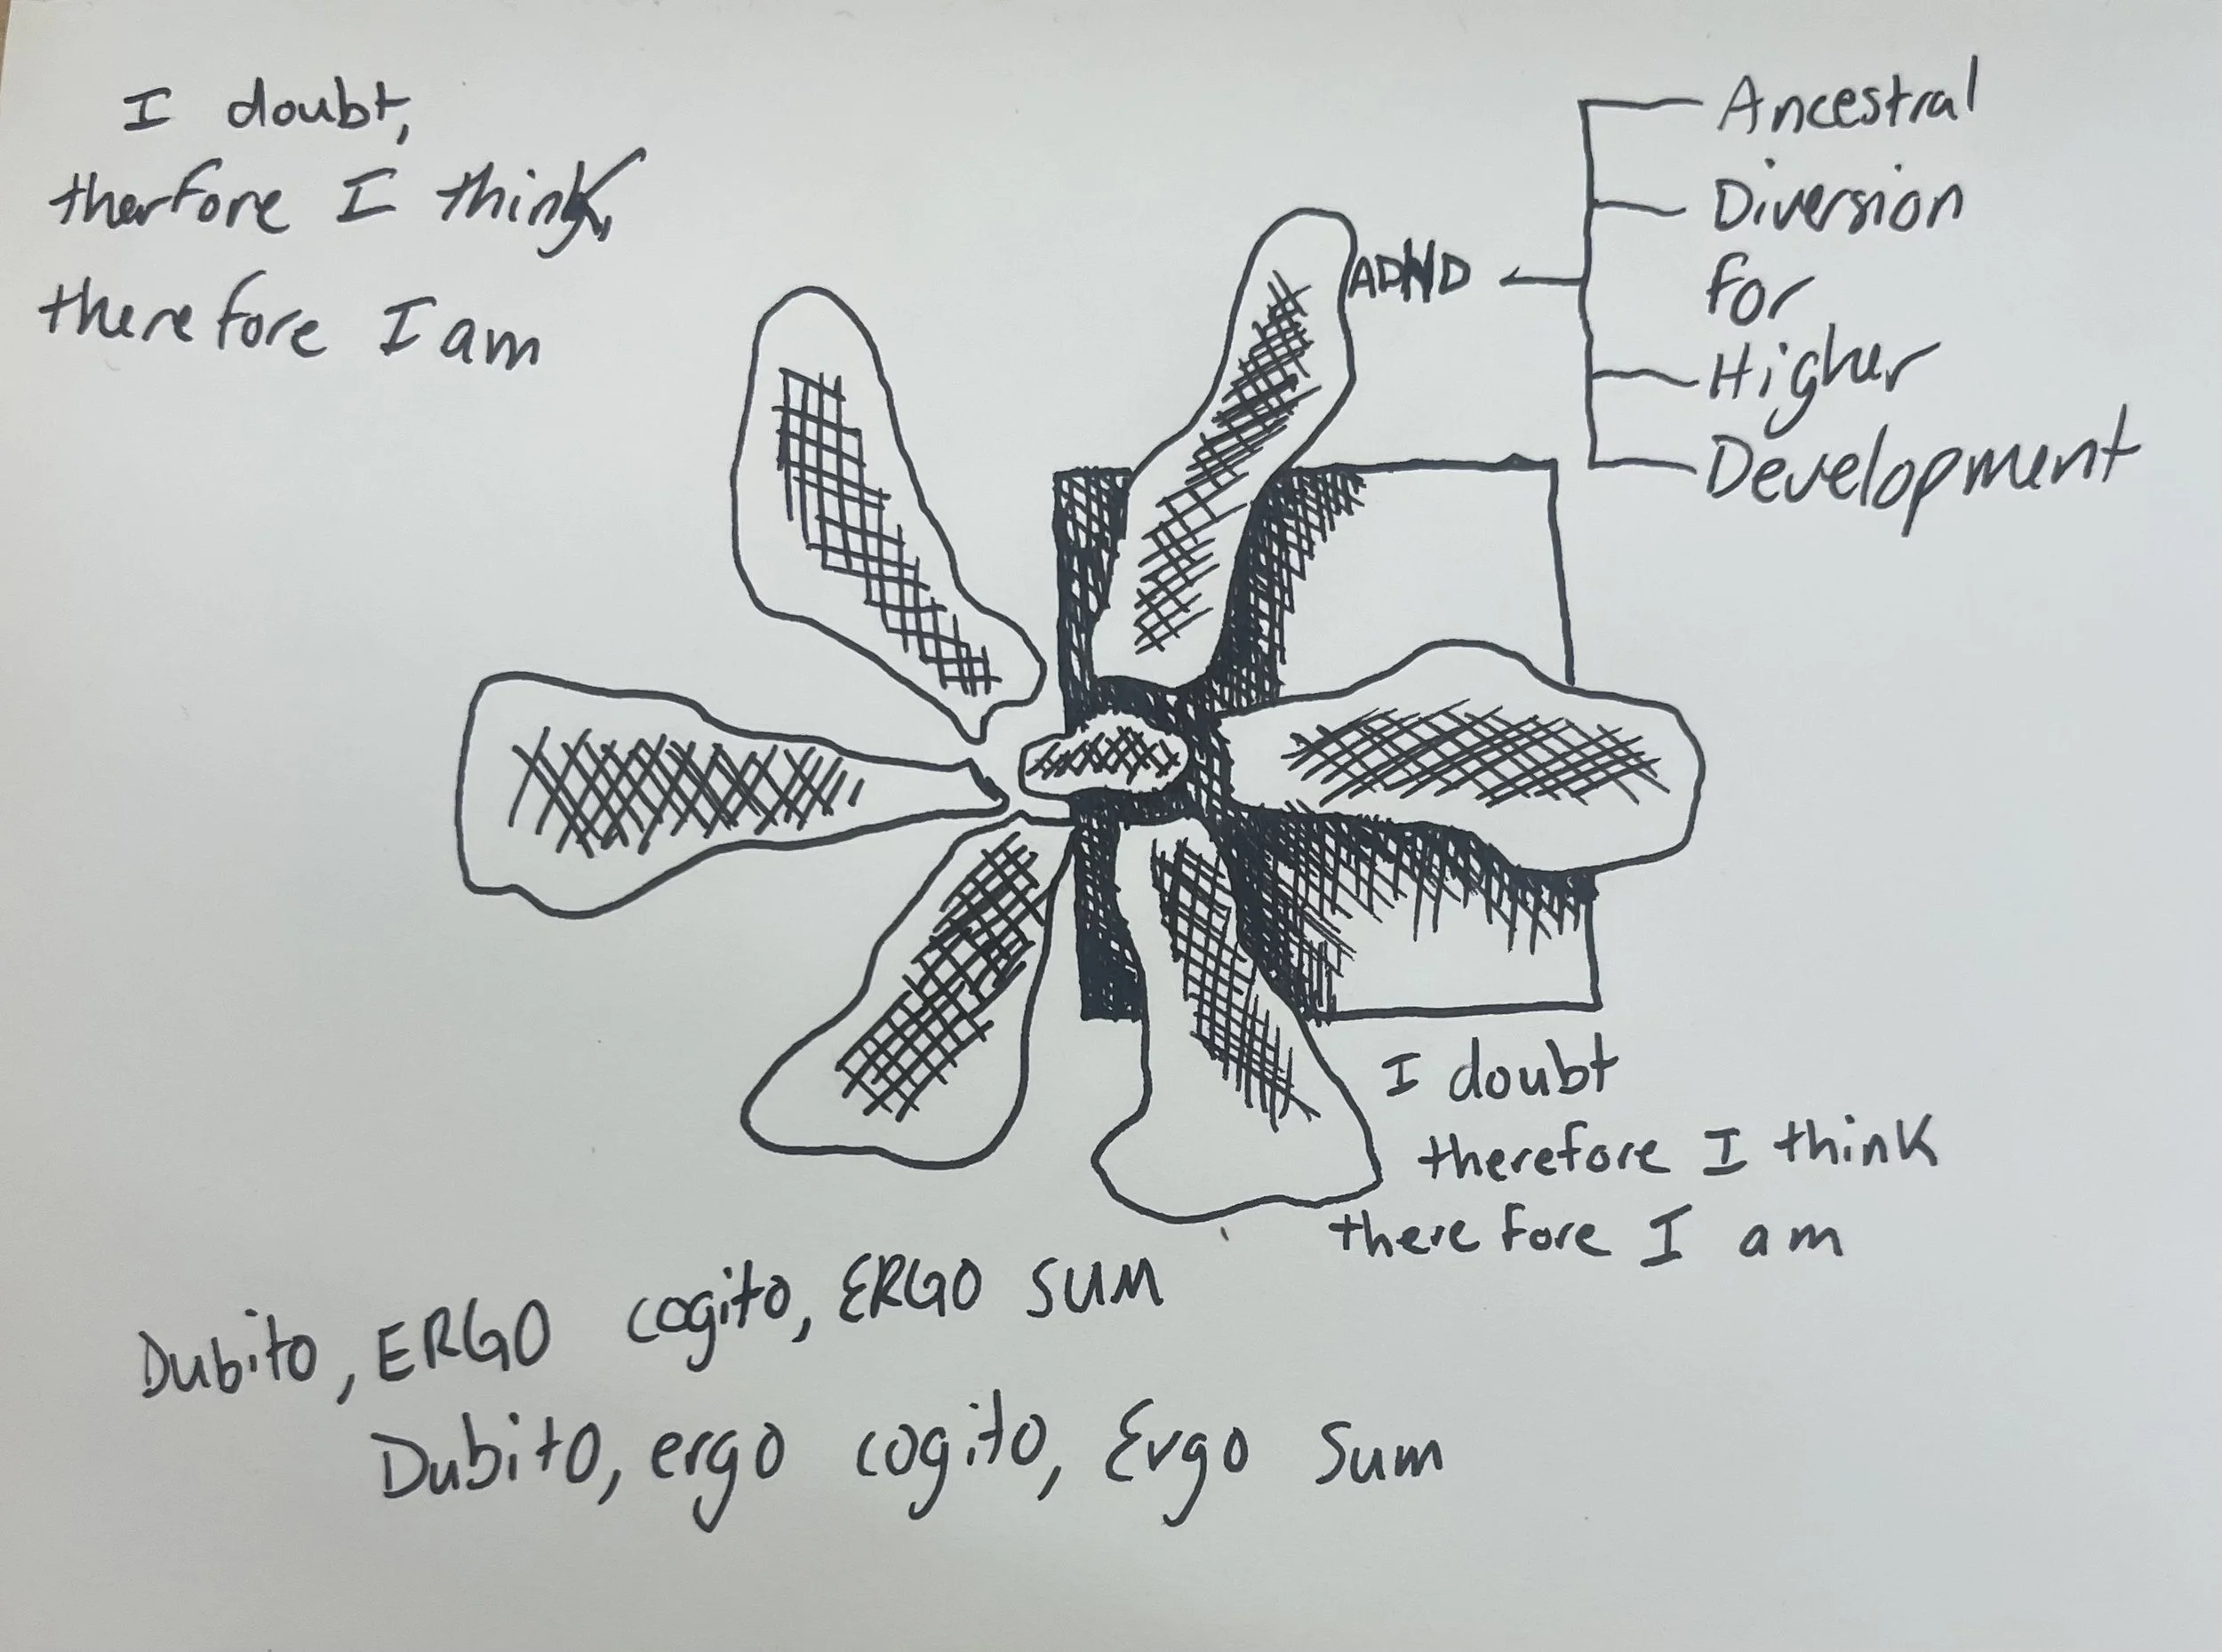 I doubt,
therfore I think,
therefore I am
ADHD
Ancestral
Diversion
for
Higher
Development
I doubt
therefore I think
therefore I am
Dubito, ERGO cogito, ERGO SUM
Dubito, ergo cogito, Ergo Sum